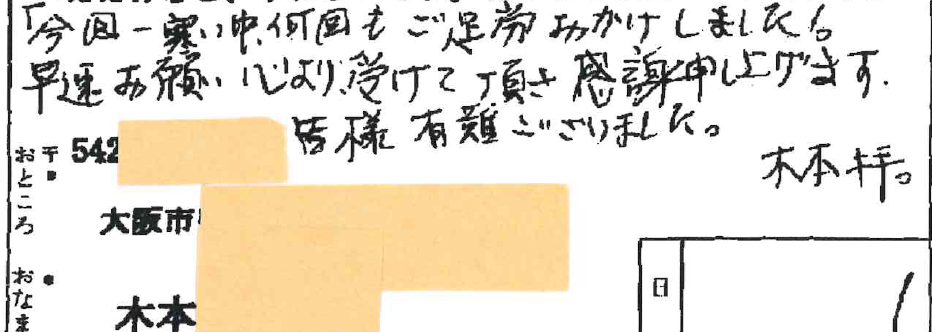 「今回一寒い中、何回もご足労おかけしました。
早速お願い心より受けて頂き感謝申し上げます.
皆様有難ございました。
木本
〒542
おところ
大阪市
おなま
木本
日